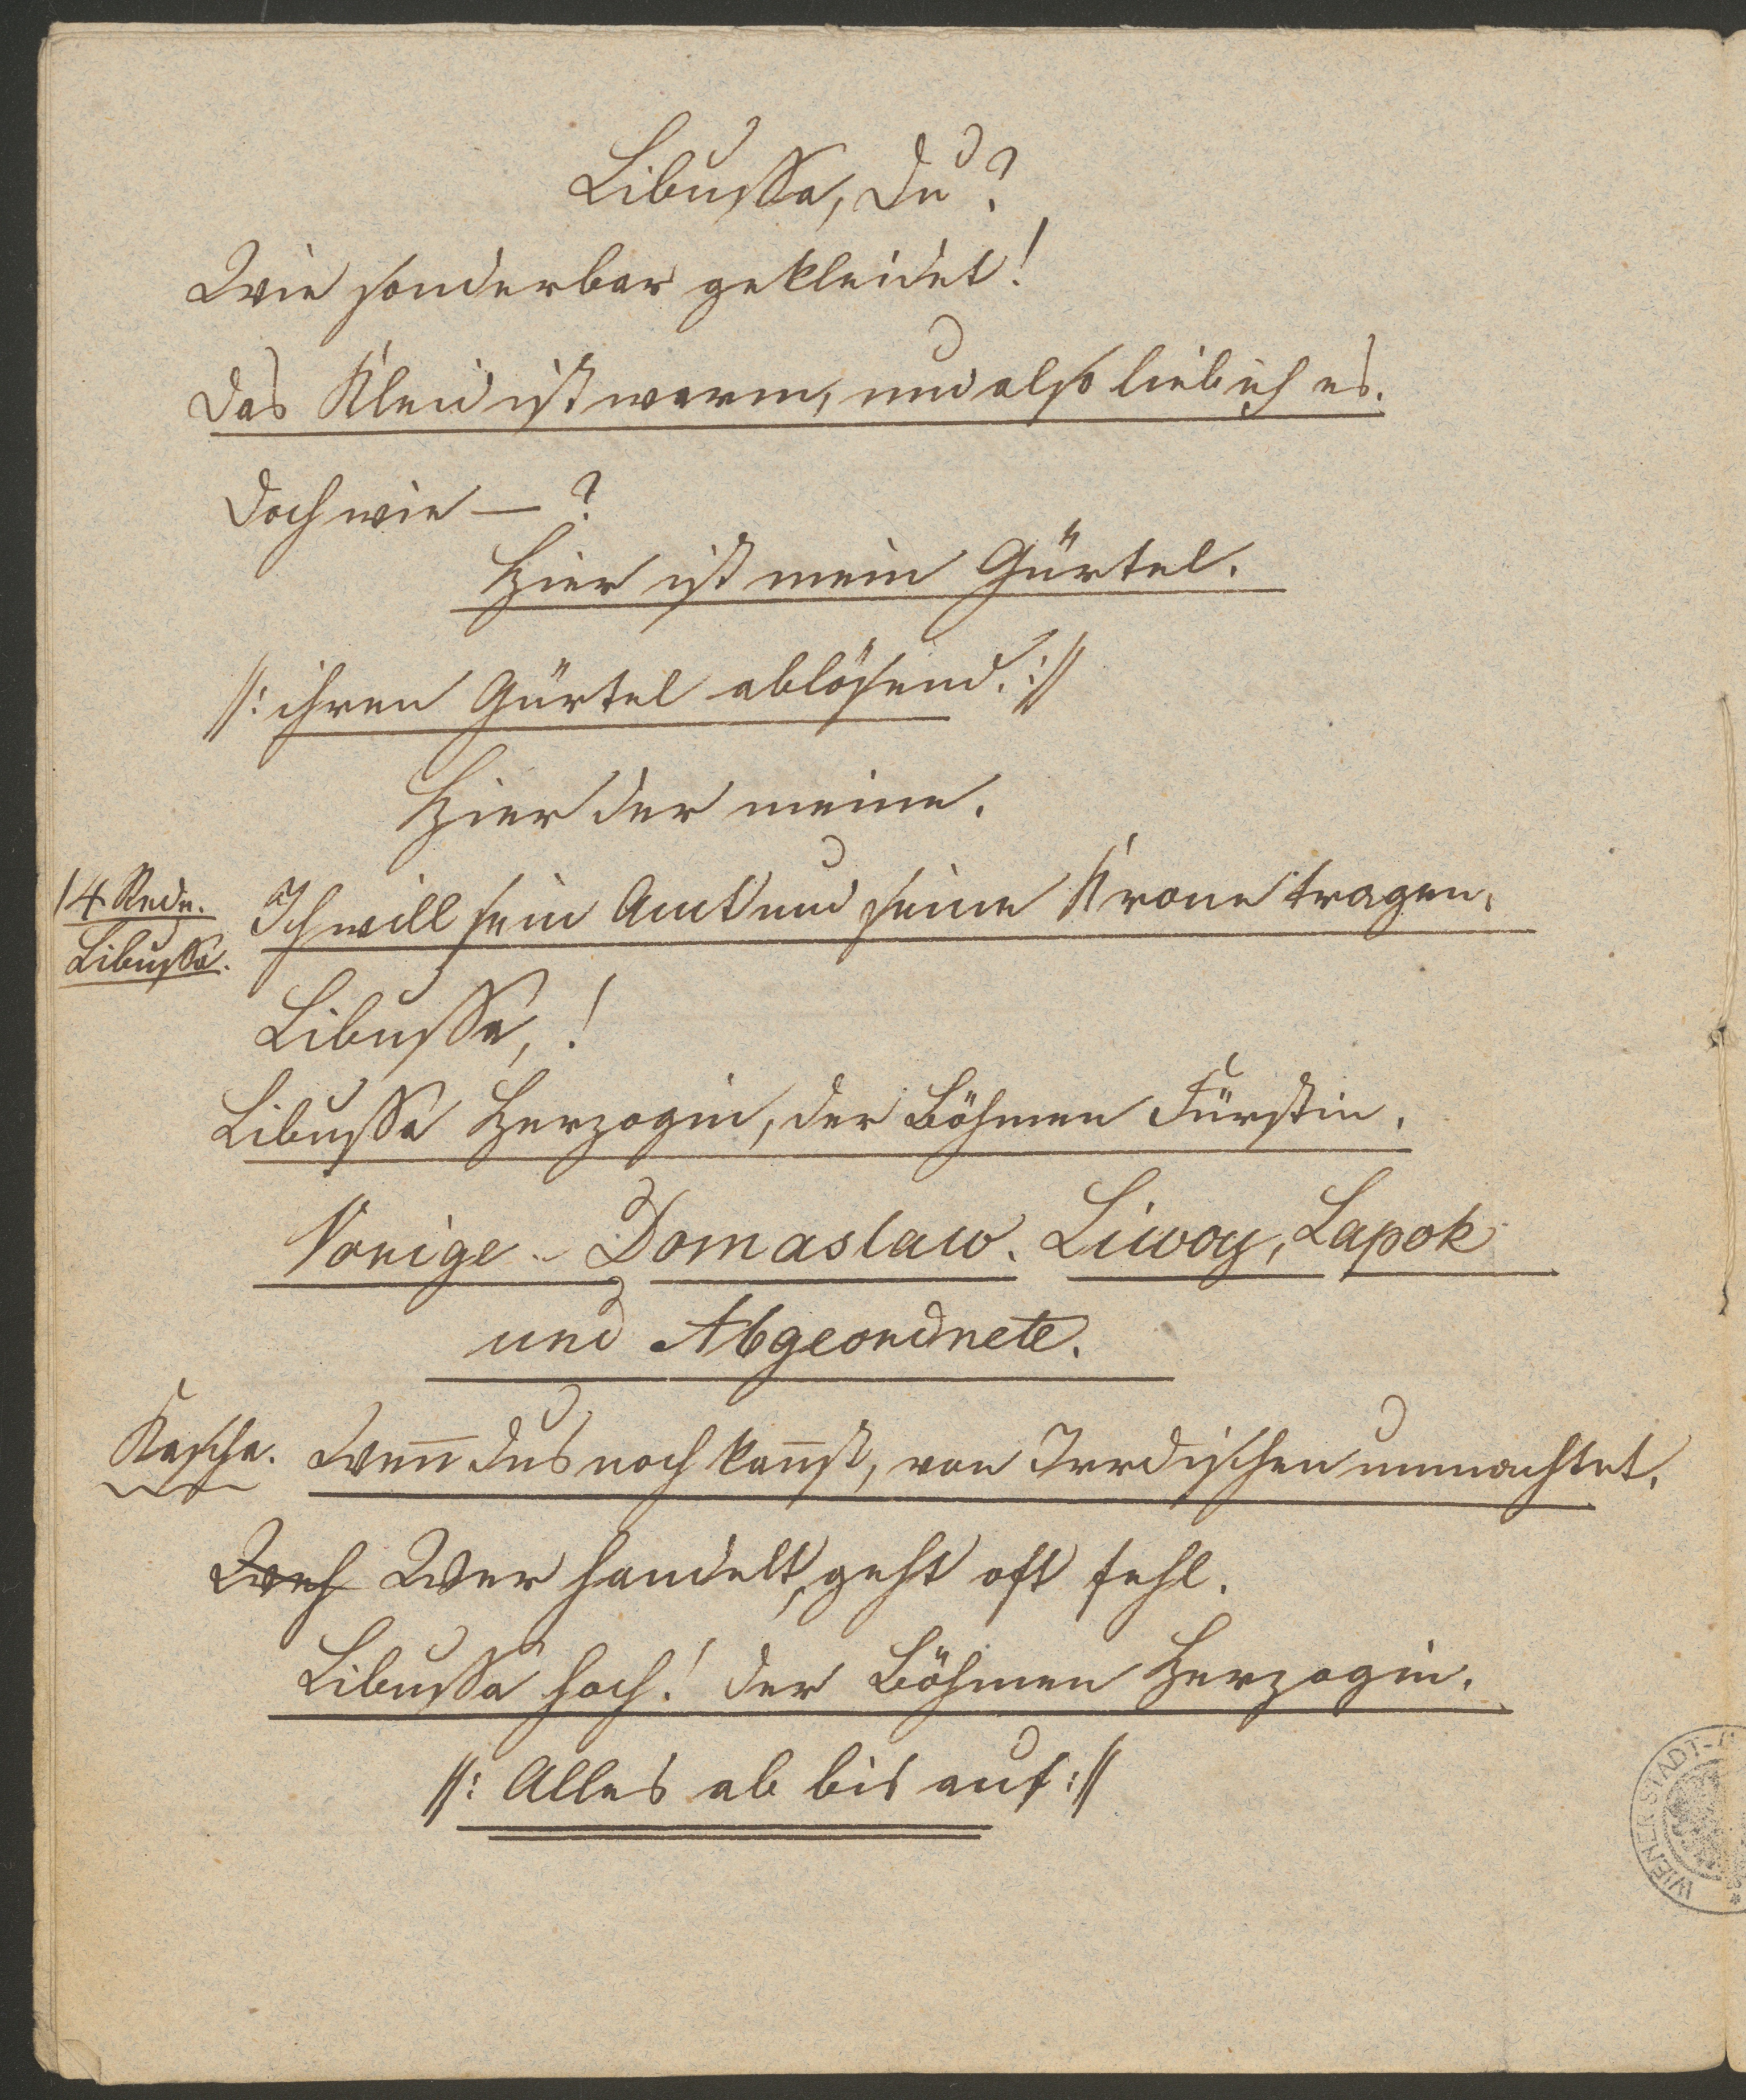 Libussa, du?
Wie sonderbar gekleidet!
Das Kleid ist warm, und also lieb ich es.
Doch wie — ?
Hier ist mein Gürtel.
//: ihren Gürtel ablösend. ://
Hier der meine.
14 Rede. Ich will sein Amt und seine Krone tragen.
Libussa.
Libussa, !
Libussa Herzogin, der Böhmen Fürstin.
Vorige - Domaslaw. Liwoy, Lapok
und Abgeordnete.
Kascha. Weñ dus noch kañst, von Irrdischen umnachtet.
Weh Wer handelt, geht oft fehl.
Libussa hoch! der Böhmen Herzogin.
//: Alles ab bis auf ://
WIENER STADT-